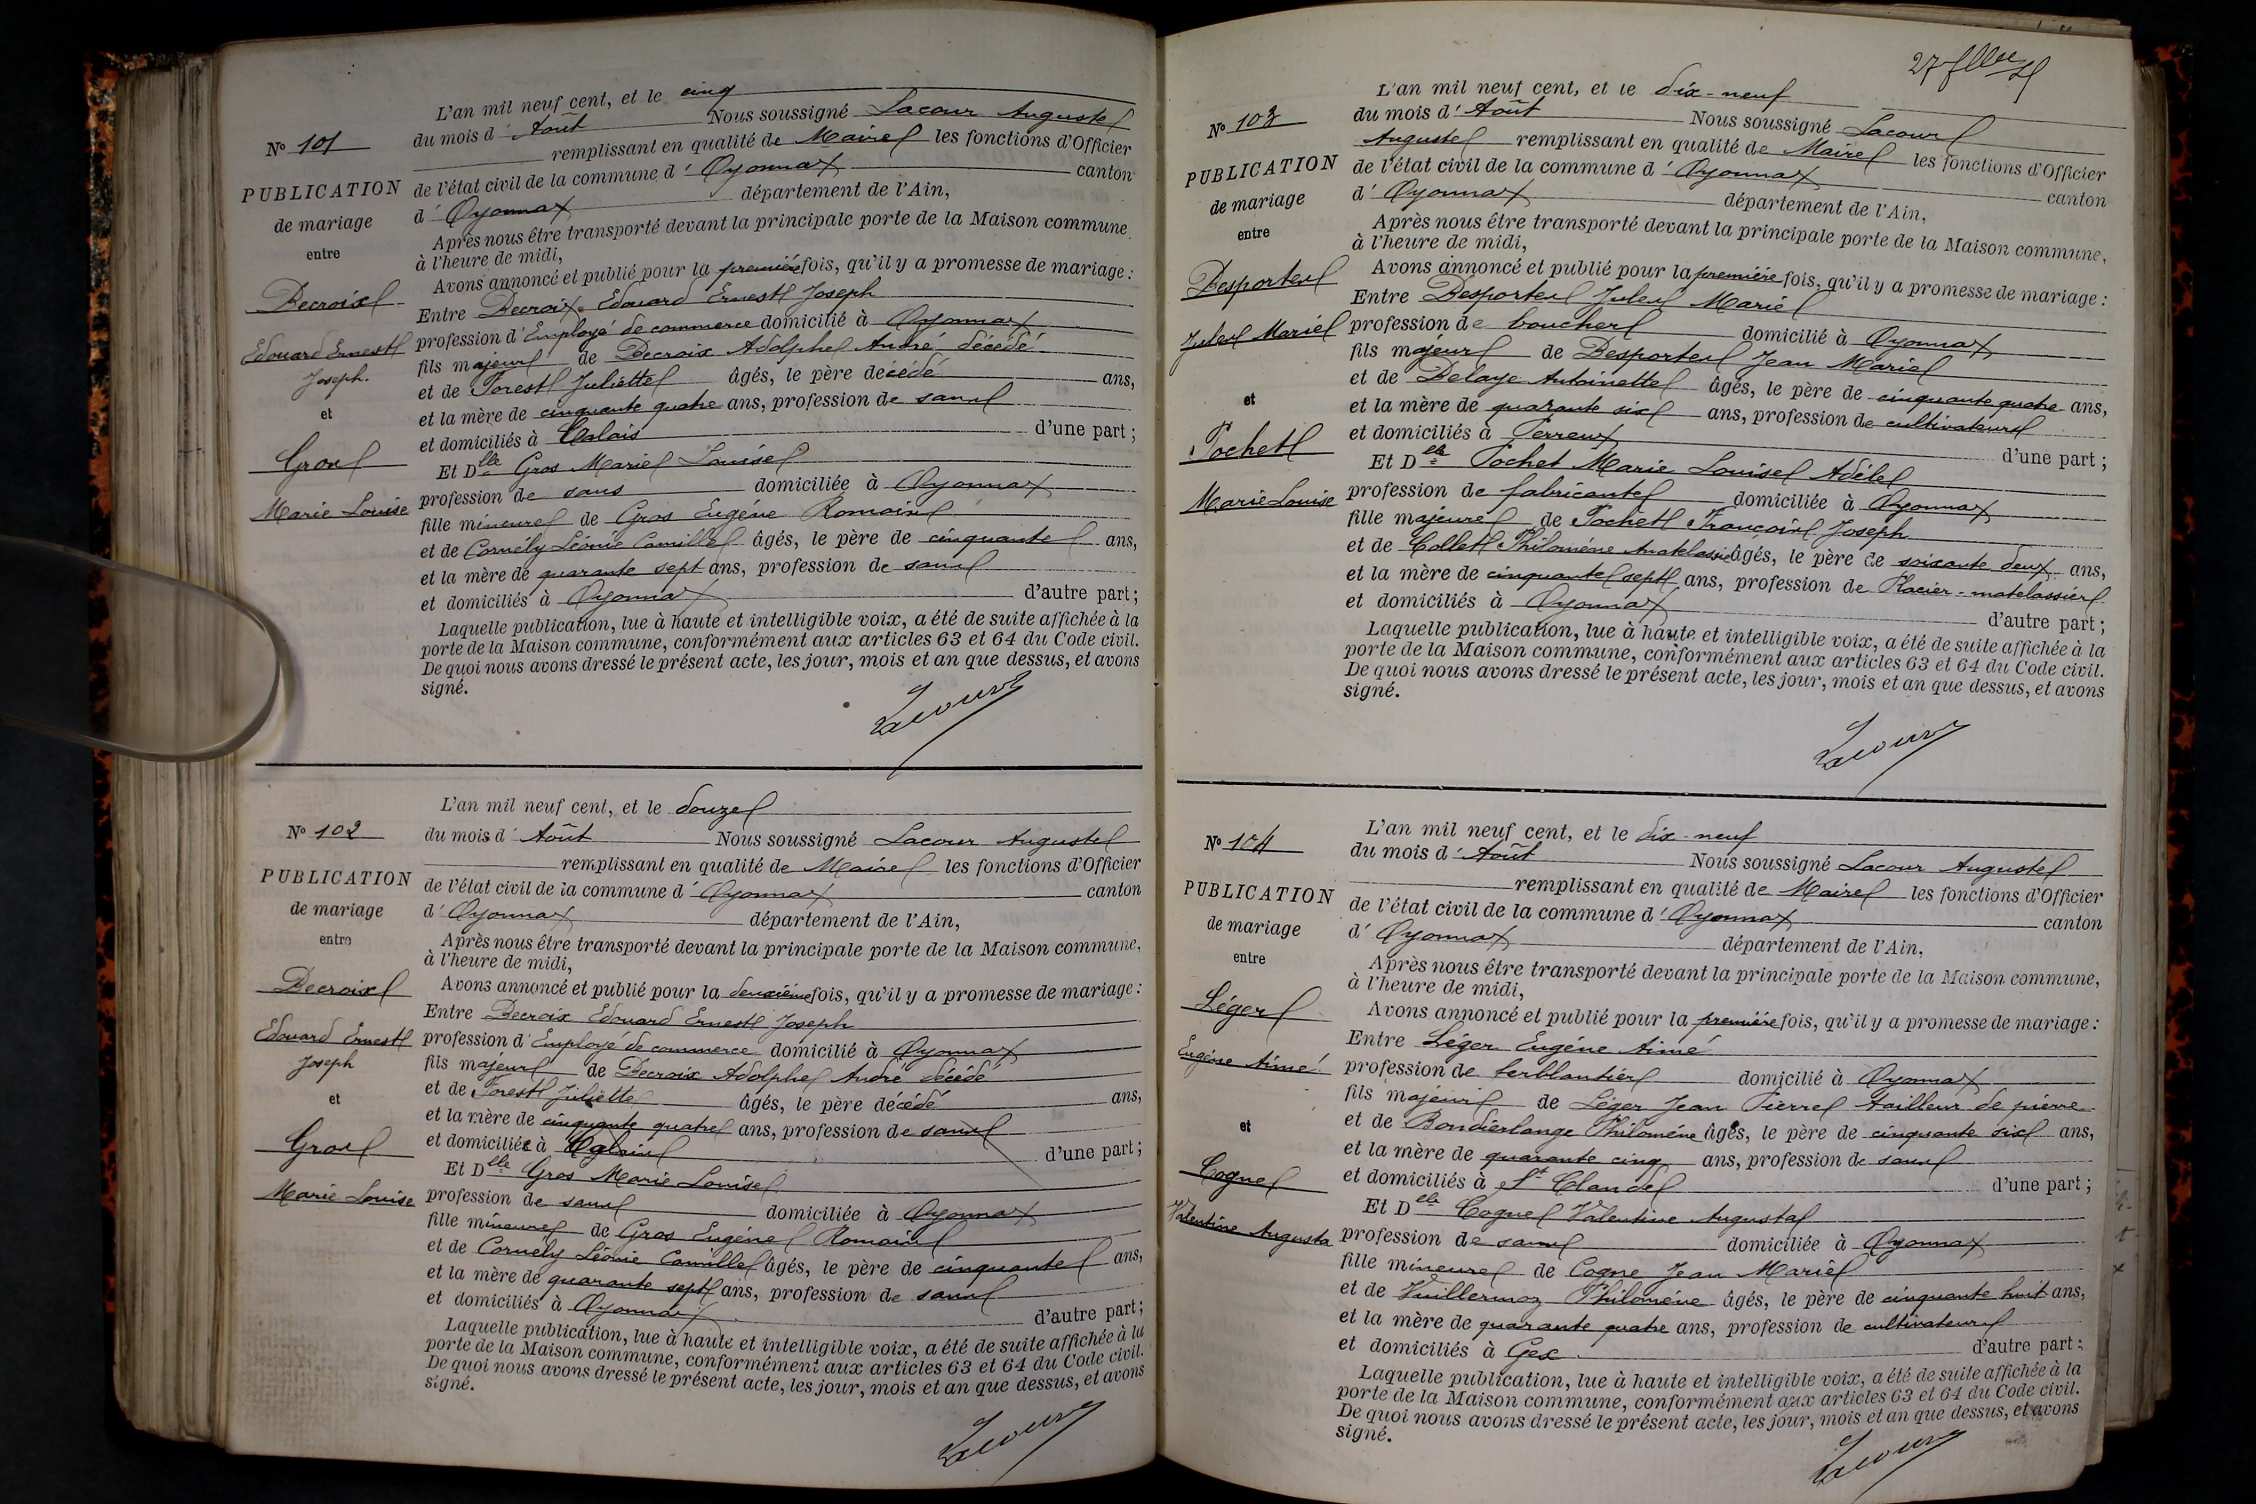 L'an mil neuf cent, et le cinq
du mois d'Août Nous soussigné Lacour Auguste
Nº 101
remplissant en qualité de Maire les fonctions d'Officier
PUBLICATION
de l'état civil de la commune d'Oyonnax canton
d'Oyonnax département de l'Ain,
de mariage
Après nous être transporté devant la principale porte de la Maison commune,
entre
à l'heure de midi,
Avons annoncé et publié pour la première fois, qu'il y a promesse de mariage :
Decroix
Entre Decroix Edouard Ernest Joseph
Edouard Ernest
profession d'Employé de commerce domicilié à Oyonnax
Joseph.
fils majeur de Decroix Adolphe André décédé
et de Forest Juliette âgés, le père décédé ans,
et
et la mère de cinquante quatre ans, profession de sans
et domiciliés à Calais d'une part ;
Gros
Et Dlle Gros Marie Louise
Marie Louise
profession de sans domiciliée à Oyonnax
fille mineure de Gros Eugène Romain
et de Cornély Léonie Camille âgés, le père de cinquante ans,
et la mère de quarante sept ans, profession de sans
et domiciliés à Oyonnax d'autre part ;
Laquelle publication, lue à haute et intelligible voix, a été de suite affichée à la
porte de la Maison commune, conformément aux articles 63 et 64 du Code civil.
De quoi nous avons dressé le présent acte, les jour, mois et an que dessus, et avons
signé.
Lacour
L'an mil neuf cent, et le douze
Nº 102
du mois d'Août Nous soussigné Lacour Auguste
remplissant en qualité de Maire les fonctions d'Officier
PUBLICATION
de l'état civil de la commune d'Oyonnax canton
de mariage
d'Oyonnax département de l'Ain,
entre
Après nous être transporté devant la principale porte de la Maison commune,
à l'heure de midi,
Decroix
Avons annoncé et publié pour la deuxième fois, qu'il y a promesse de mariage :
Entre Decroix Edouard Ernest Joseph
Edouard Ernest
profession d'Employé de commerce domicilié à Oyonnax
Joseph
fils majeur de Décroix Adolphe André décédé
et
et de Forest Juliette âgés, le père décédé ans,
et la mère de cinquante quatre ans, profession de sans
Gros
et domiciliés à Calais d'une part ;
Et Dlle Gros Marie Louise
Marie Louise
profession de sans domiciliée à Oyonnax
fille mineure de Gros Eugène Romain
et de Cornély Léonie Camille âgés, le père de cinquante ans,
et la mère de quarante sept ans, profession de sans
et domiciliés à Oyonnax d'autre part ;
Laquelle publication, lue à haute et intelligible voix, a été de suite affichée à la
porte de la Maison commune, conformément aux articles 63 et 64 du Code civil.
De quoi nous avons dressé le présent acte, les jour, mois et an que dessus, et avons
signé.
Lacour
27
L'an mil neuf cent, et le dix-neuf
Nº 103
du mois d'Août Nous soussigné Lacour
Auguste remplissant en qualité de Maire les fonctions d'Officier
PUBLICATION
de l'état civil de la commune d'Oyonnax canton
de mariage
d'Oyonnax département de l'Ain,
entre
Après nous être transporté devant la principale porte de la Maison commune,
à l'heure de midi,
Desportes
Avons annoncé et publié pour la première fois, qu'il y a promesse de mariage :
Entre Desportes Jules Marie
Jules Marie
profession de boucher domicilié à Oyonnax
fils majeur de Desportes Jean Marie
et
et de Delaye Antoinette âgés, le père de cinquante quatre ans,
et la mère de quarante six ans, profession de cultivateurs
Pochet
et domiciliés à Perreux d'une part ;
Et Dlle Pochet Marie Louise Adèle
Marie Louise
profession de fabricante domiciliée à Oyonnax
fille majeure de Pochet François Joseph
et de Collet Philomène âgés, le père de soixante deux ans,
et la mère de cinquante sept ans, profession de Placier-matelassier
et domiciliés à Oyonnax d'autre part ;
Laquelle publication, lue à haute et intelligible voix, a été de suite affichée à la
porte de la Maison commune, conformément aux articles 63 et 64 du Code civil.
De quoi nous avons dressé le présent acte, les jour, mois et an que dessus, et avons
signé.
Lacour
L'an mil neuf cent, et le dix-neuf
Nº 104
du mois d'Août Nous soussigné Lacour Auguste
remplissant en qualité de Maire les fonctions d'Officier
PUBLICATION
de l'état civil de la commune d'Oyonnax canton
de mariage
d'Oyonnax département de l'Ain,
entre
Après nous être transporté devant la principale porte de la Maison commune,
à l'heure de midi,
Léger
Avons annoncé et publié pour la première fois, qu'il y a promesse de mariage :
Entre Léger Eugène Aimé
Eugène Aimé
profession de ferblantier domicilié à Oyonnax
fils majeur de Léger Jean Pierre tailleur de pierre
et
et de Bondierlange Philomène âgés, le père de cinquante six ans,
et la mère de quarante cinq ans, profession de sans
Cogne
et domiciliés à St Claude d'une part ;
Et Dlle Cogne Valentine Augusta
Valentine Augusta
profession de sans domiciliée à Oyonnax
fille mineure de Cogne Jean Marie
et de Vuillermoz Philomène âgés, le père de cinquante huit ans,
et la mère de quarante quatre ans, profession de cultivateurs
et domiciliés à Gex d'autre part ;
Laquelle publication, lue à haute et intelligible voix, a été de suite affichée à la
porte de la Maison commune, conformément aux articles 63 et 64 du Code civil.
De quoi nous avons dressé le présent acte, les jour, mois et an que dessus, et avons
signé.
Lacour